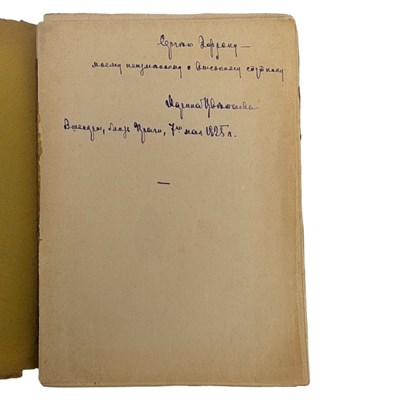 Сергею Эфрону —
моему неизменному и                спутнику
Марина Цветаева
Вшеноры, близ Праги, 7го мая 1925 г.
—